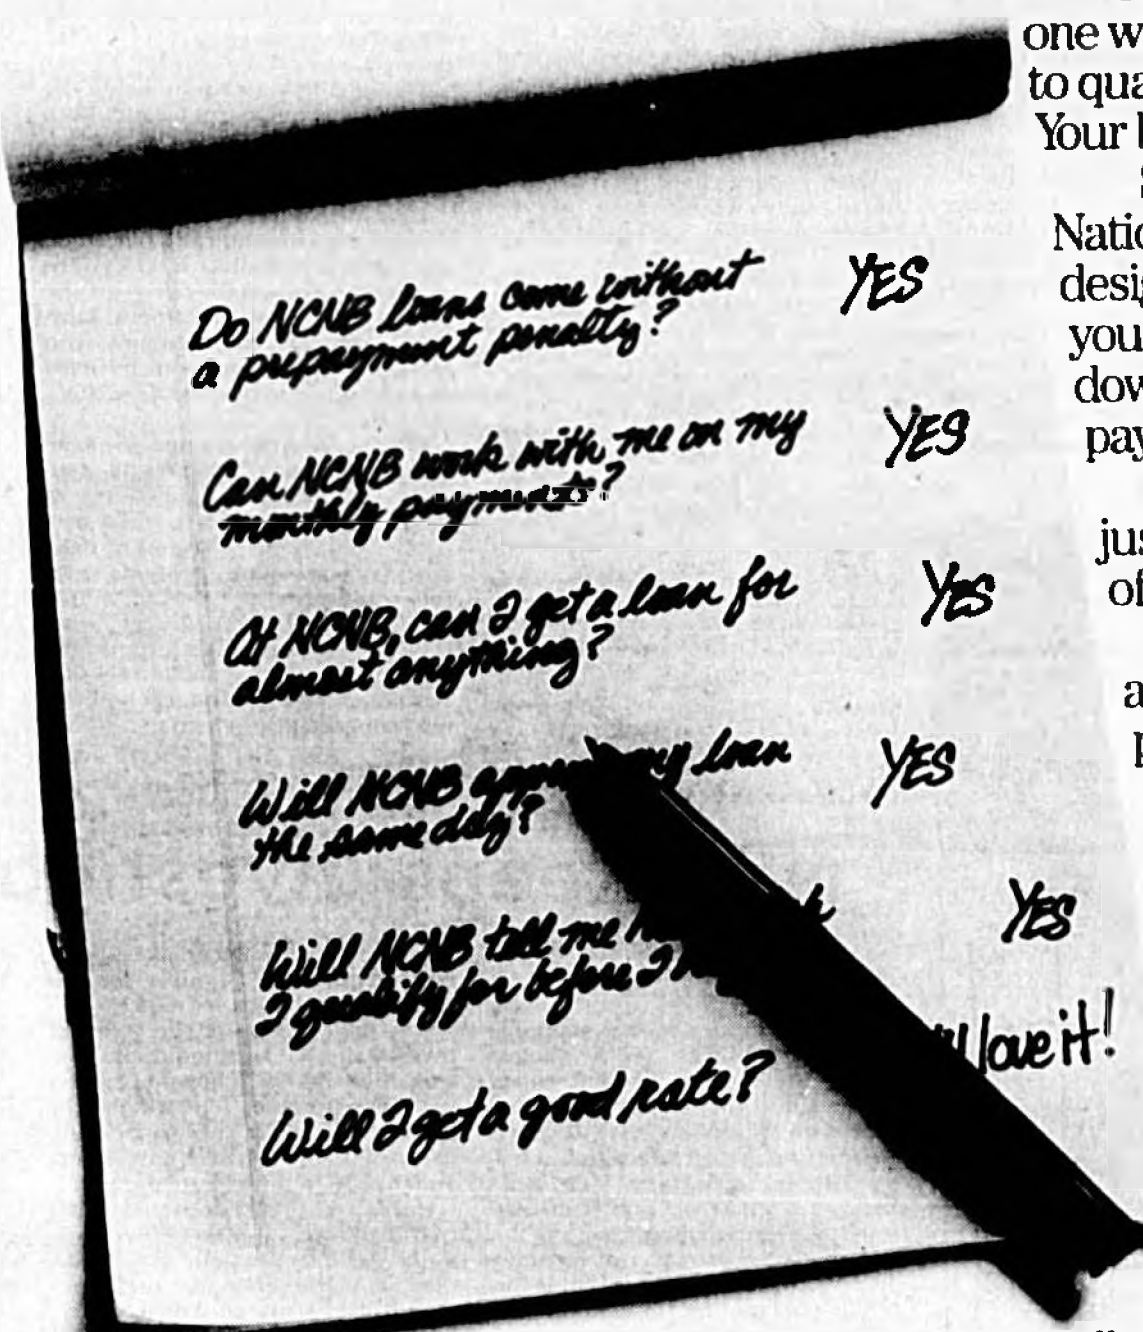 Do NCNB loans come without
a prepayment penalty?
YES
Can NCNB work with me on my
monthly payments?
YES
At NCNB, can I get a loan for
almost anything?
YES
Will NCNB my loan
the same day?
YES
Will NCNB tell me
I qualify for before I
YES
Will I get a good rate?
love it!
one w
to qua
Your
Natio
desig
you
dow
pay
jus
of
a
p